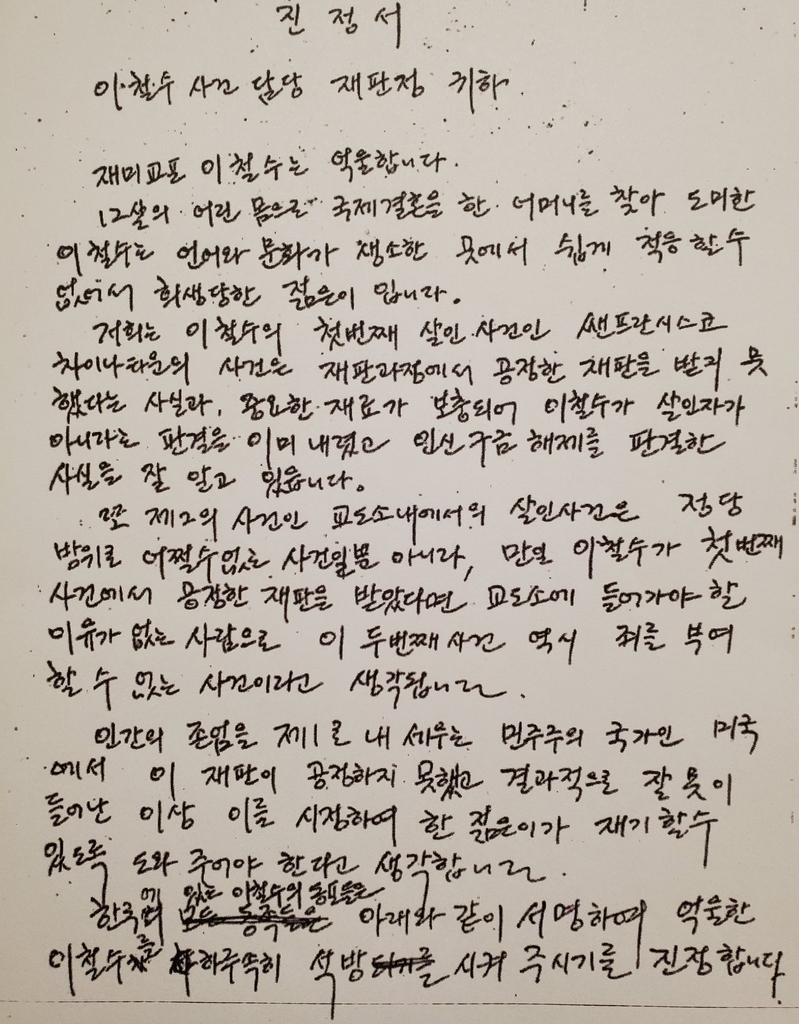 진정서
이철수 사건 담당 재판정 귀하.
재미교포 이철수는 억울합니다.
12살의 어린 몸으로 국제결혼을 한 어머니를 찾아 도미한
이철수는 언어와 문화가 생소한 곳에서 쉽게 적응할수
없어서 희생당한 젊은이 입니다.
저희는 이철수의 첫번째 살인 사건인 쌘프란시스코
차이나타운의 사건은 재판과정에서 공정한 재판을 받지 못
했다는 사실과, 중요한 재료가 보충되어 이철수가 살인자가
아니라는 판결을 이미 내렸고 인신구금 해제를 판결한
사실을 잘 알고 있읍니다.
또 제2의 사건인 교도소내에서의 살인사건은 정당
방위로 어쩔수없는 사건일뿐 아니라, 만일 이철수가 첫번째
사건에서 공정한 재판을 받았다면 교도소에 들어가야 할
이유가 없는 사람으로 이 두번째 사건 역시 죄를 부여
할 수 없는 사건이라고 생각됩니다.
인간의 존엄을 제1로 내 세우는 민주주의 국가인 미국
에서 이 재판이 공정하지 못했고 결과적으로 잘못이
들어난 이상 이를 시정하여 한 젊은이가 재기할수
있도록 도와 주어야 한다고 생각합니다.
한국에 있는 이철수의 동포들은 아래와 같이 서명하여 억울한
이철수를 하루속히 석방 시켜 주시기를 진정합니다